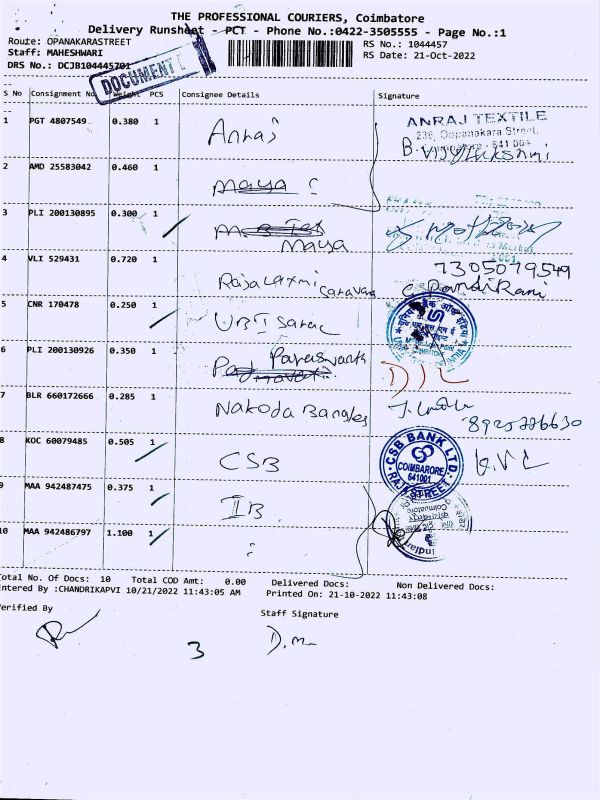 THE PROFESSIONAL COURIERS, Coimbatore
Delivery Runsheet - PCT - Phone No.:0422-3505555 - Page No.:1
Route: OPANAKARASTREET
RS No.: 1044457
Staff: MAHESHWARI
RS Date: 21-Oct-2022
DRS No.: DCJB104445701
DOCUMENT
S No Consignment No Weight PCS Consignee Details Signature
1 PGT 4807549 0.380 1 Anraj
ANRAJ TEXTILE
236, Oppanakara Street,
B. Vijayalakshmi
2 AMD 25583042 0.460 1
3 PLI 200130895 0.300 1 Maya
4 VLI 529431 0.720 1 Rajalaxmi Saravana
7305079549
C. PandiRani
5 CNR 170478 0.250 1 UBI Sarac
6 PLI 200130926 0.350 1 Paraswanth
7 BLR 660172666 0.285 1 Nakoda Bangles
8 KOC 60079485 0.505 1 CSB
CSB BANK LTD.
COIMBATORE
641001
RAJA STREET
9 MAA 942487475 0.375 1 IB
Indian
Coimbatore
10 MAA 942486797 1.100 1
Total No. Of Docs: 10 Total COD Amt: 0.00 Delivered Docs: Non Delivered Docs:
Entered By :CHANDRIKAPVI 10/21/2022 11:43:05 AM Printed On: 21-10-2022 11:43:08
Verified By Staff Signature
3 D.m